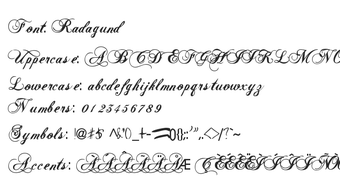 Font: Radagund
Uppercase: ABCDEFGHIJKLMNO
Lowercase: abcdefghijklmnopqrstuvwxyz
Numbers: 0123456789
Symbols: !@#$ ^&*()_+-={}[]:;"',.<>/?~
Accents: ÀÁÂÃÄÅÆ ÇÈÉÊËÌÍÎÏÑ